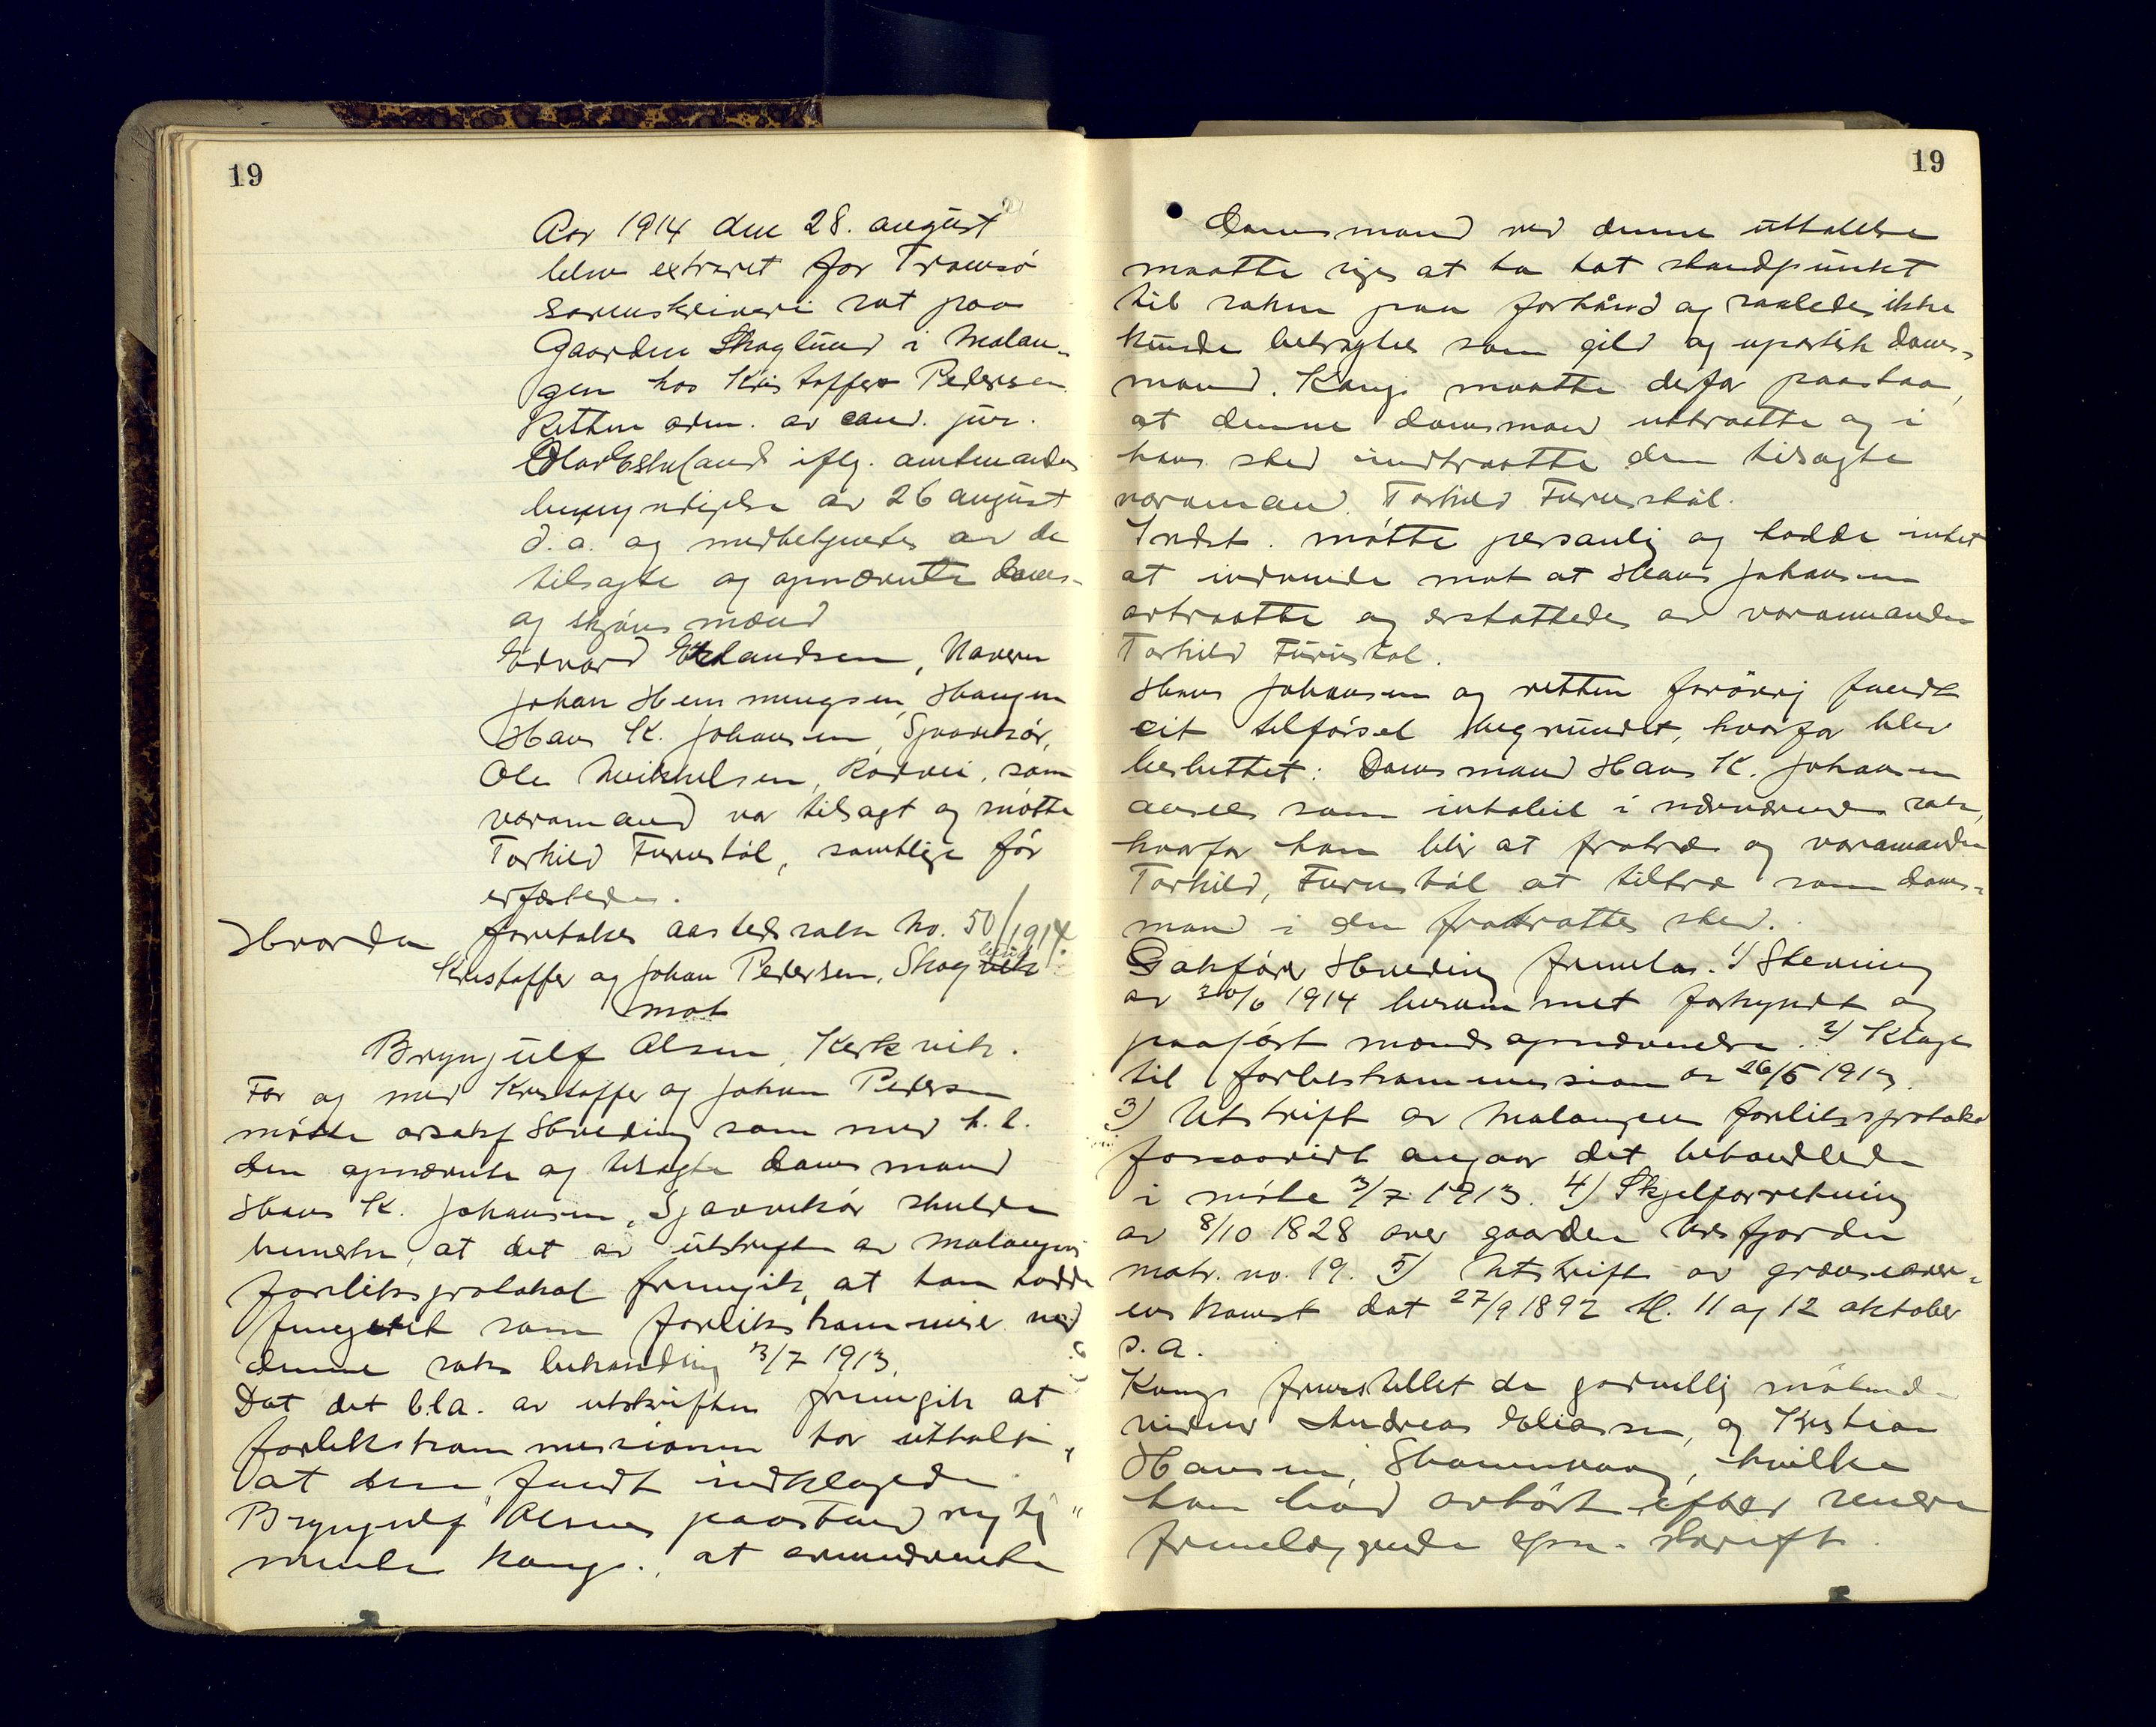 19
Aar 1914 den 28. august
blev extraret for Tromsö
sorenskriveri sat paa
Gaarden Skoglund i Malan-
gen hos Kristoffer Pedersen
Retten adm. av cand. jur.
Olav Eskeland iflg. amtmandens
bemyndigelse av 26 august
d.a. og medbetjentes av de
tilsagte og opnævnte doms-
og skjöns mænd
Edvard Erlandsen, Naveren
Johan Hemmingsen, Haugen
Hans K. Johansen, Sjaavikör,
Ole Mikkelsen, Rödvei, som
varamand var tilsagt og mötte
Torkild Furustöl, samtlige för
edfæstede.
Hvorda foretokes aastedssaken No. 50/1914:
Kristoffer og Johan Pedersen, Skoglund
mot
Brynjulf Olsen, Kirkvik.
For og med Kristoffer og Johan Pedersen
mötte orsakf Hveding som med h. t.
den opnævnte og tilsagte domsmand
Hans K. Johansen, Sjaavikör skulde
bemerke, at det av utskriften av Malangens
forliksprotokol fremgik, at han hadde
fungert som forlikskommisær ved
denne saks behandling 3/7 1913.
Dat det bl.a. av utskriften fremgik at
forlikskommissionen har uttalt,
"at den fandt indklagede
Brynjulf Olsens paastand rigtig"
mente kongs., at ovennævnte
19
domsmand ved denne uttalelse
maatte siges at ha tat standpunkt
til saken paa forhånd og saaledes ikke
kunde betragtes som gild og upartisk doms-
mand. Kongs maatte derfor paastaa,
at denne domsmand uttraatte og i
hans sted indtraatte den tilsagte
varamand Torkild Furustöl.
Indst. mötte personlig og hadde intet
at indvende mot at Hans Johansen
avtraatte og erstattedes av varamanden
Torkild Furustöl.
Hans Johansen og retten forövrig fandt
eit tilförsel begrundet, hvorfor blev
besluttet: Domsmand Hans K. Johansen
ansees som inhabil i nærværende sak,
hvorfor han blir at fratræ og varamanden
Torkild Furustöl at tiltræ som doms-
mand i den fratraattes sted.
Sakförer Hveding fremla. 1) Stevning
av 30/6 1914 berammet forkyndt og
paaført mandsopnævnelse. 2) Klage
til forlikskommission av 26/5 1913.
3) Utskrift av Malangen forliksprotokol
forsaavidt angaar det behandlede
i möte 3/7 1913. 4) Skjelforretning
av 8/10 1828 over gaarden Aursfjorden
matr. no. 19. 5) Utskrift av grænseover-
enskomst dat 27/9 1892 tl. 11 og 12 oktober
s.a.
Kongs fremstillet de godvillig mötende
vidner Andreas Eliassen, og Kristian
Hansen, Skavnvaag, hvilke
han bad avhört efter senere
fremlæggende spm. skrift.